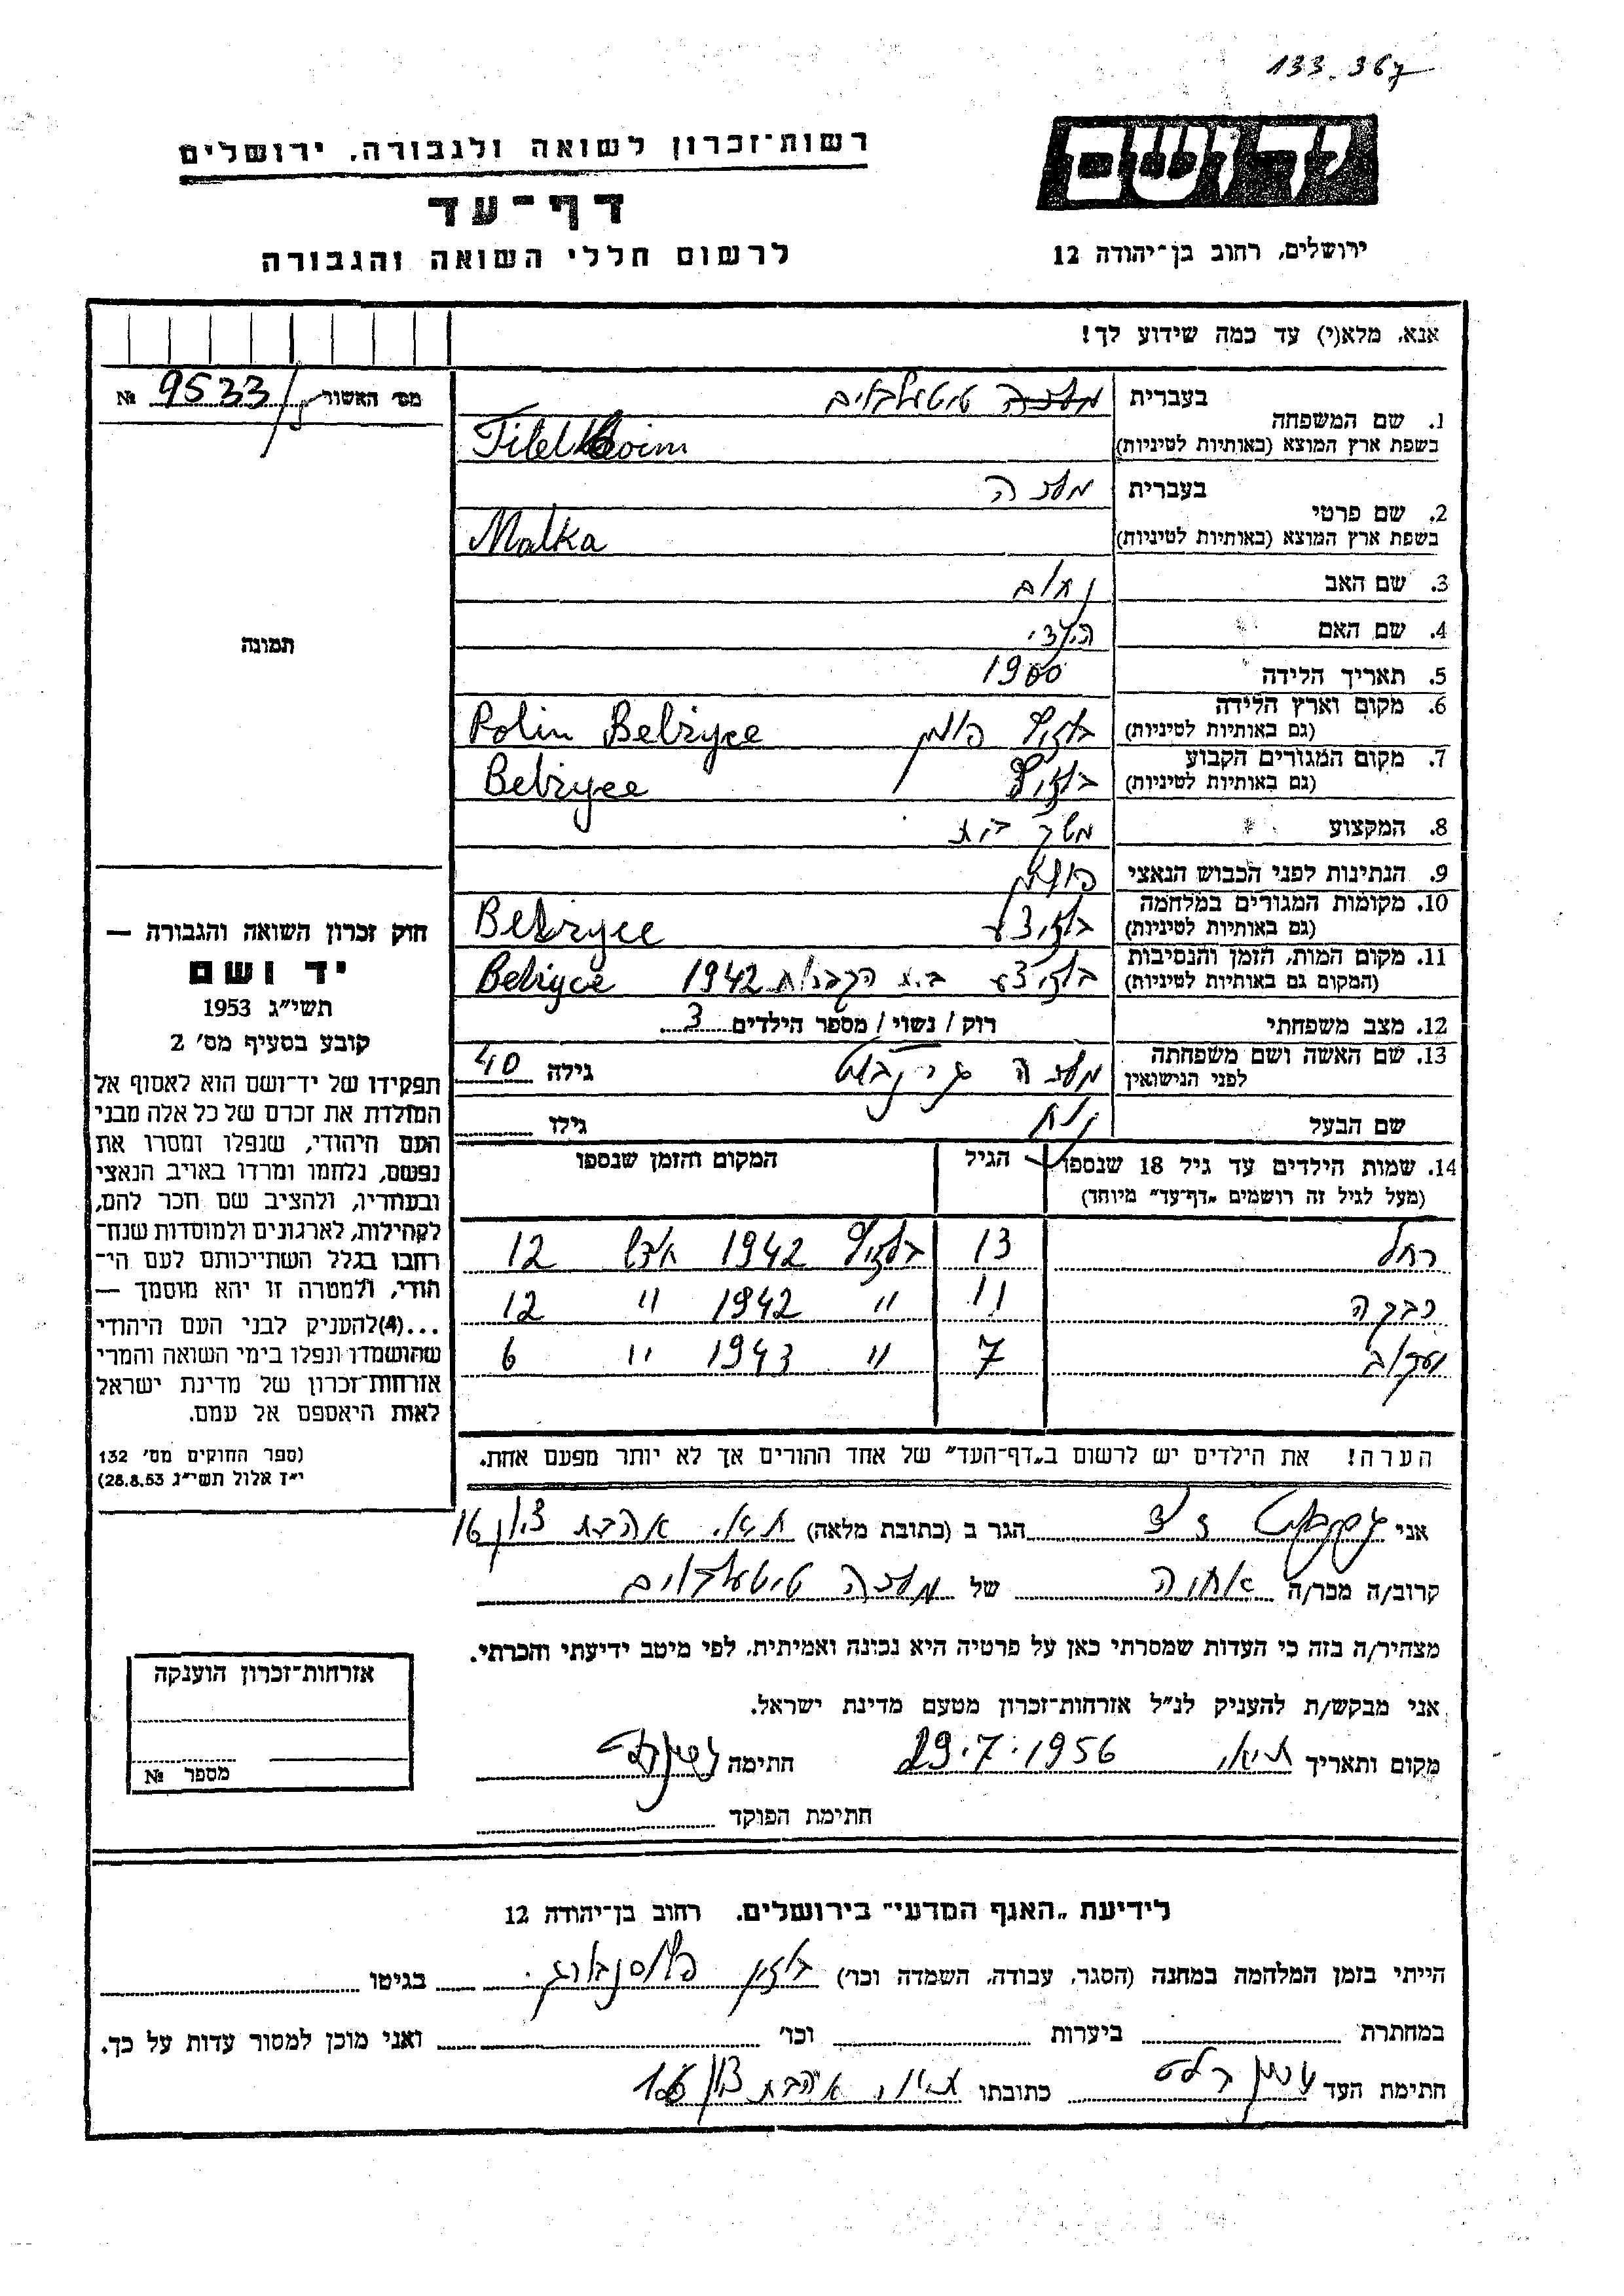 133.367
יד ושם
רשות־זכרון לשואה ולגבורה, ירושלים
דף־עד
לרשום חללי השואה והגבורה
ירושלים, רחוב בן־יהודה 12
אנא, מלא(י) עד כמה שידוע לך!
מס׳ האשור 9533 №
1. שם המשפחה
בעברית טיטלבוים
בשפת ארץ המוצא (באותיות לטיניות) Titelboim
2. שם פרטי
בעברית מלכה
בשפת ארץ המוצא (באותיות לטיניות) Malka
3. שם האב נחום
4. שם האם
5. תאריך הלידה 1900
6. מקום וארץ הלידה
(גם באותיות לטיניות) פולין Polin Belzyce
7. מקום המגורים הקבוע
(גם באותיות לטיניות) Belzyce
8. המקצוע משק בית
9. הנתינות לפני הכבוש הנאצי
10. מקומות המגורים במלחמה
(גם באותיות לטיניות) Belzyce
11. מקום המות, הזמן והנסיבות
(המקום גם באותיות לטיניות) בית הקברות 1942 Belzyce
12. מצב משפחתי רוק / נשוי / מספר הילדים 3
13. שם האשה ושם משפחתה
לפני הנישואין מלכה גילה 40
שם הבעל גילו
14. שמות הילדים עד גיל 18 שנספו הגיל המקום והזמן שנספו
(מעל לגיל זה רושמים „דף־עד״ מיוחד)
רחל 13 1942 12
רבקה 11 " 1942 " 12
יעקב 7 " 1943 " 6
הערה! את הילדים יש לרשום ב„דף־העד״ של אחד ההורים אך לא יותר מפעם אחת.
תמונה
חוק זכרון השואה והגבורה —
יד ושם
תשי״ג 1953
קובע בסעיף מס׳ 2
תפקידו של יד־ושם הוא לאסוף אל
המולדת את זכרם של כל אלה מבני
העם היהודי, שנפלו ומסרו את
נפשם, נלחמו ומרדו באויב הנאצי
ובעוזריו, ולהציב שם וזכר להם,
לקהילות, לארגונים ולמוסדות שנח־
רבו בגלל השתייכותם לעם הי־
הודי, ולמטרה זו יהא מוסמך —
...(4) להעניק לבני העם היהודי
שהושמדו ונפלו בימי השואה והמרי
אזרחות־זכרון של מדינת ישראל
לאות היאספם אל עמם.
(ספר החוקים מס׳ 132
י״ז אלול תשי״ג 28.8.53)
אני הגר ב (כתובת מלאה) אהבת ציון 16
קרוב/ה מכר/ה אחיה של מלכה טיטלבוים
מצהיר/ה בזה כי העדות שמסרתי כאן על פרטיה היא נכונה ואמיתית, לפי מיטב ידיעתי והכרתי.
אני מבקש/ת להעניק לנ״ל אזרחות־זכרון מטעם מדינת ישראל.
מקום ותאריך 29.7.1956 חתימה
חתימת הפוקד
אזרחות־זכרון הוענקה
מספר №
לידיעת „האגף המדעי״ בירושלים, רחוב בן־יהודה 12
הייתי בזמן המלחמה במחנה (הסגר, עבודה, השמדה וכו׳) בגיטו
במחתרת ביערות וכו׳ ואני מוכן למסור עדות על כך.
חתימת העד כתובתו אהבת ציון 16